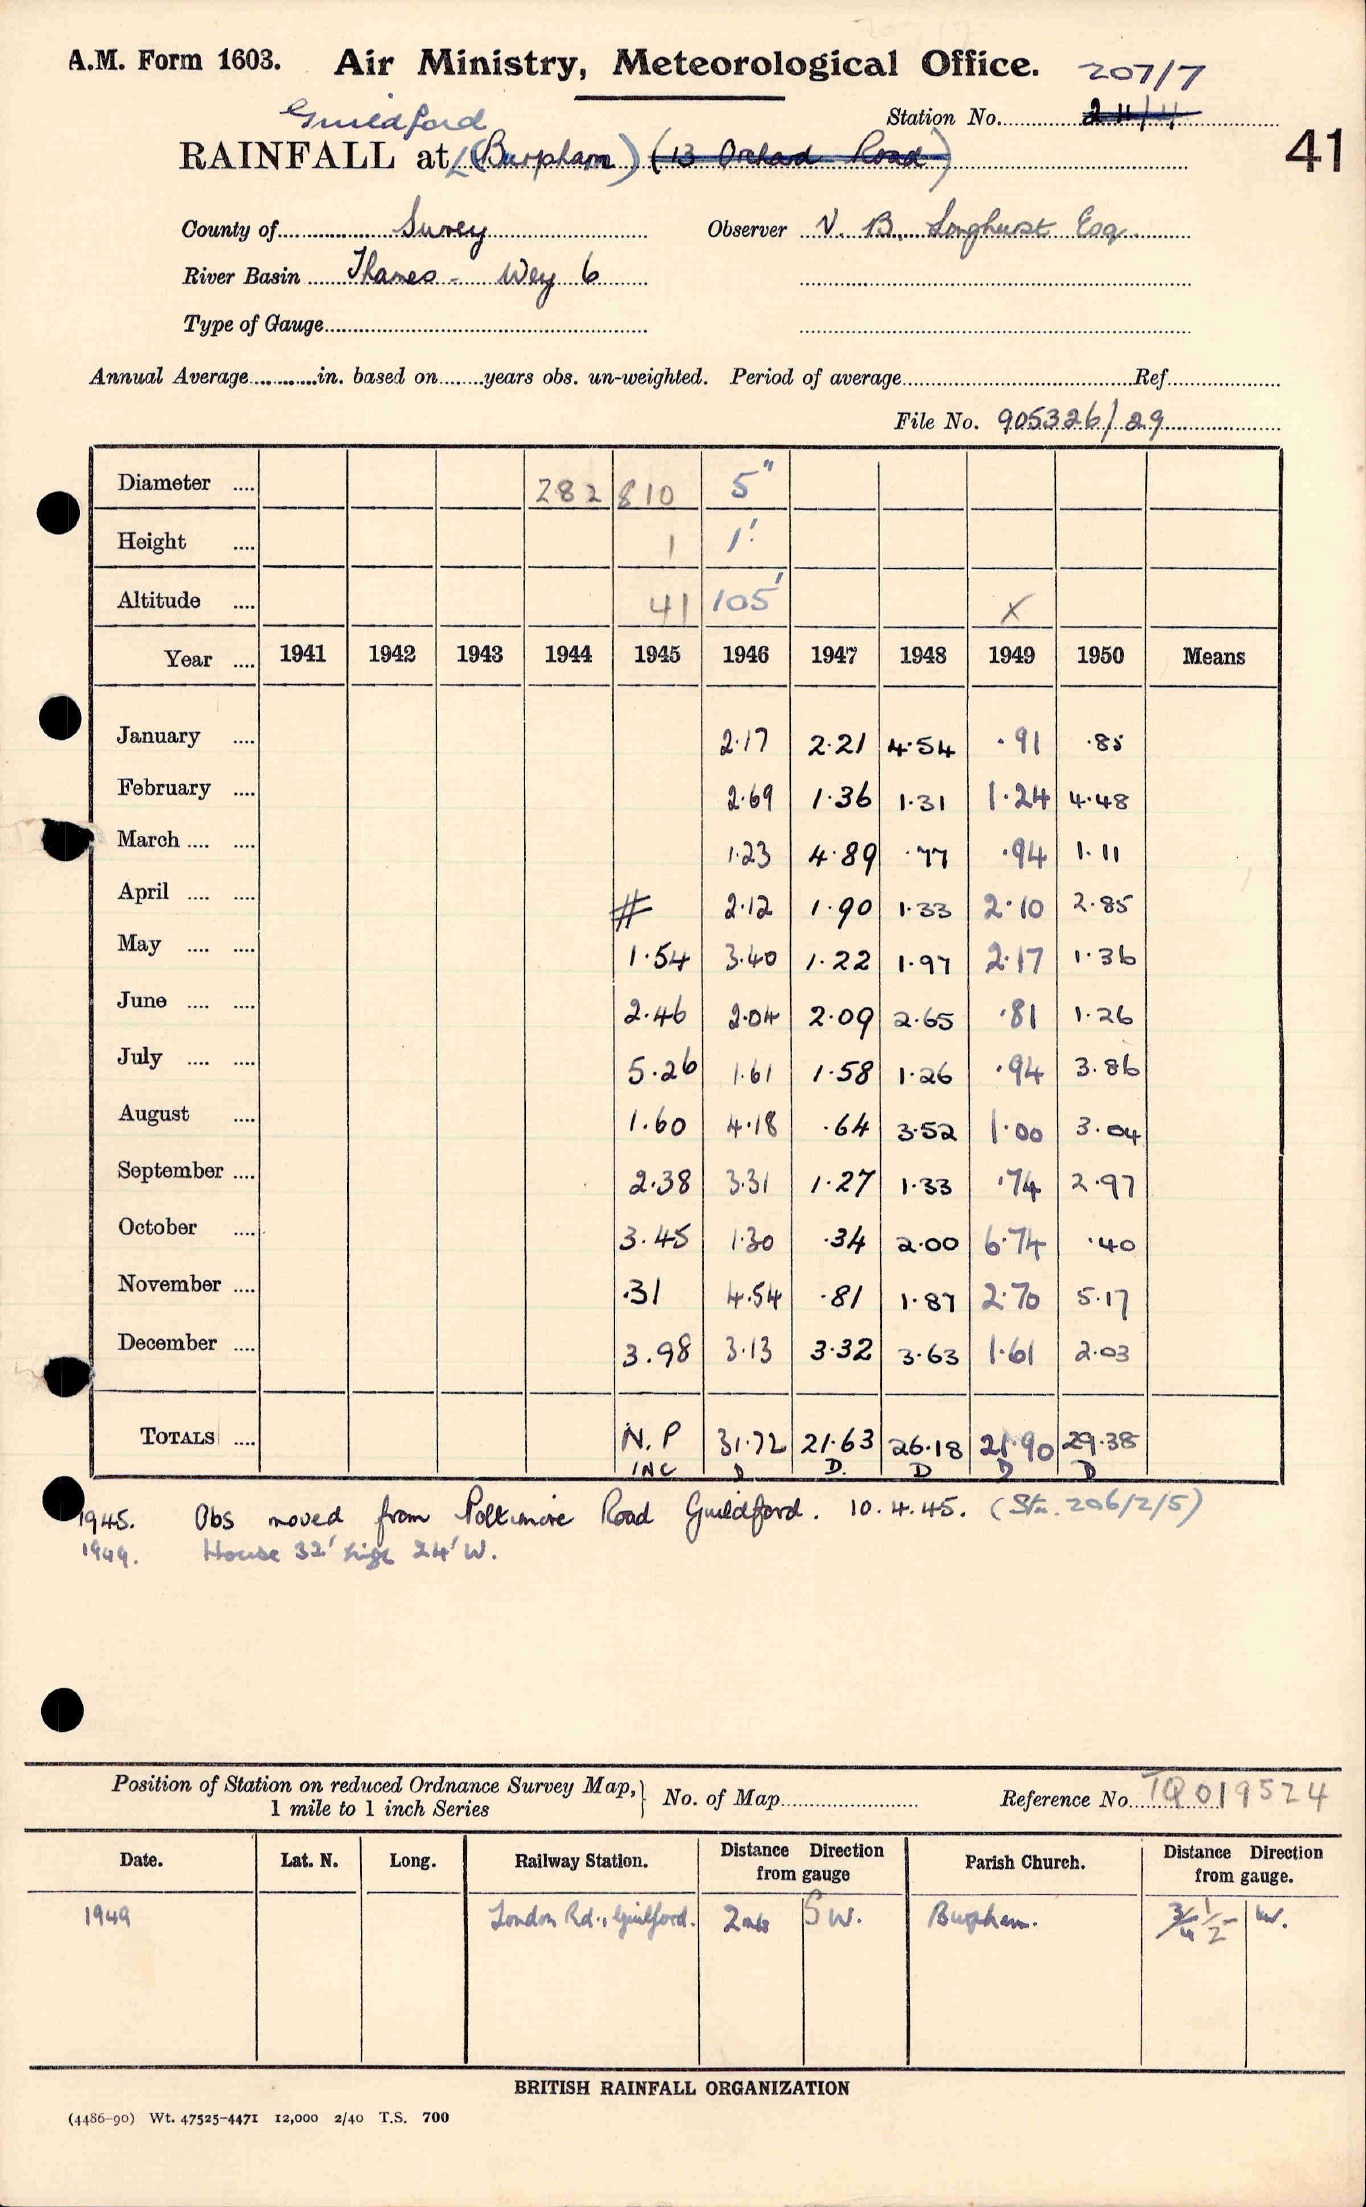 A.M. Form 1603. Air Ministry, Meteorological Office. 207/7
Guildford
Station No. 211/4
RAINFALL at (Burpham) (13 Orchad Road) 41
County of Surrey Observer V. B. Longhurst Esq.
River Basin Thames - Wey 6
Type of Gauge
Annual Average in. based on years obs. un-weighted. Period of average Ref.
File No. 905326/29
Diameter 282 810 5"
Height 1 1'
Altitude 41 105' X
Year 1941 1942 1943 1944 1945 1946 1947 1948 1949 1950 Means
January 2.17 2.21 4.54 .91 .85
February 2.69 1.36 1.31 1.24 4.48
March 1.23 4.89 .77 .94 1.11
April # 2.12 1.90 1.33 2.10 2.85
May 1.54 3.40 1.22 1.97 2.17 1.36
June 2.46 2.04 2.09 2.65 .81 1.26
July 5.26 1.61 1.58 1.26 .94 3.86
August 1.60 4.18 .64 3.52 1.00 3.04
September 2.38 3.31 1.27 1.33 .74 2.97
October 3.45 1.30 .34 2.00 6.74 .40
November .31 4.54 .81 1.87 2.70 5.17
December 3.98 3.13 3.32 3.63 1.61 2.03
TOTALS N.P 31.72 21.63 26.18 21.90 29.38
INC D D. D D D
1945. Obs moved from Poltimore Road Guildford. 10.4.45. (Stn. 206/2/5)
1949. House 32' high 24' W.
Position of Station on reduced Ordnance Survey Map, 1 mile to 1 inch Series No. of Map Reference No. TQ019524
Date. Lat. N. Long. Railway Station. Distance from gauge Direction Parish Church. Distance from gauge. Direction
1949 London Rd., Guilford. 2 mls SW. Burpham. 3/4 1/2 W.
BRITISH RAINFALL ORGANIZATION
(4486-90) Wt. 47525-4471 12,000 2/40 T.S. 700